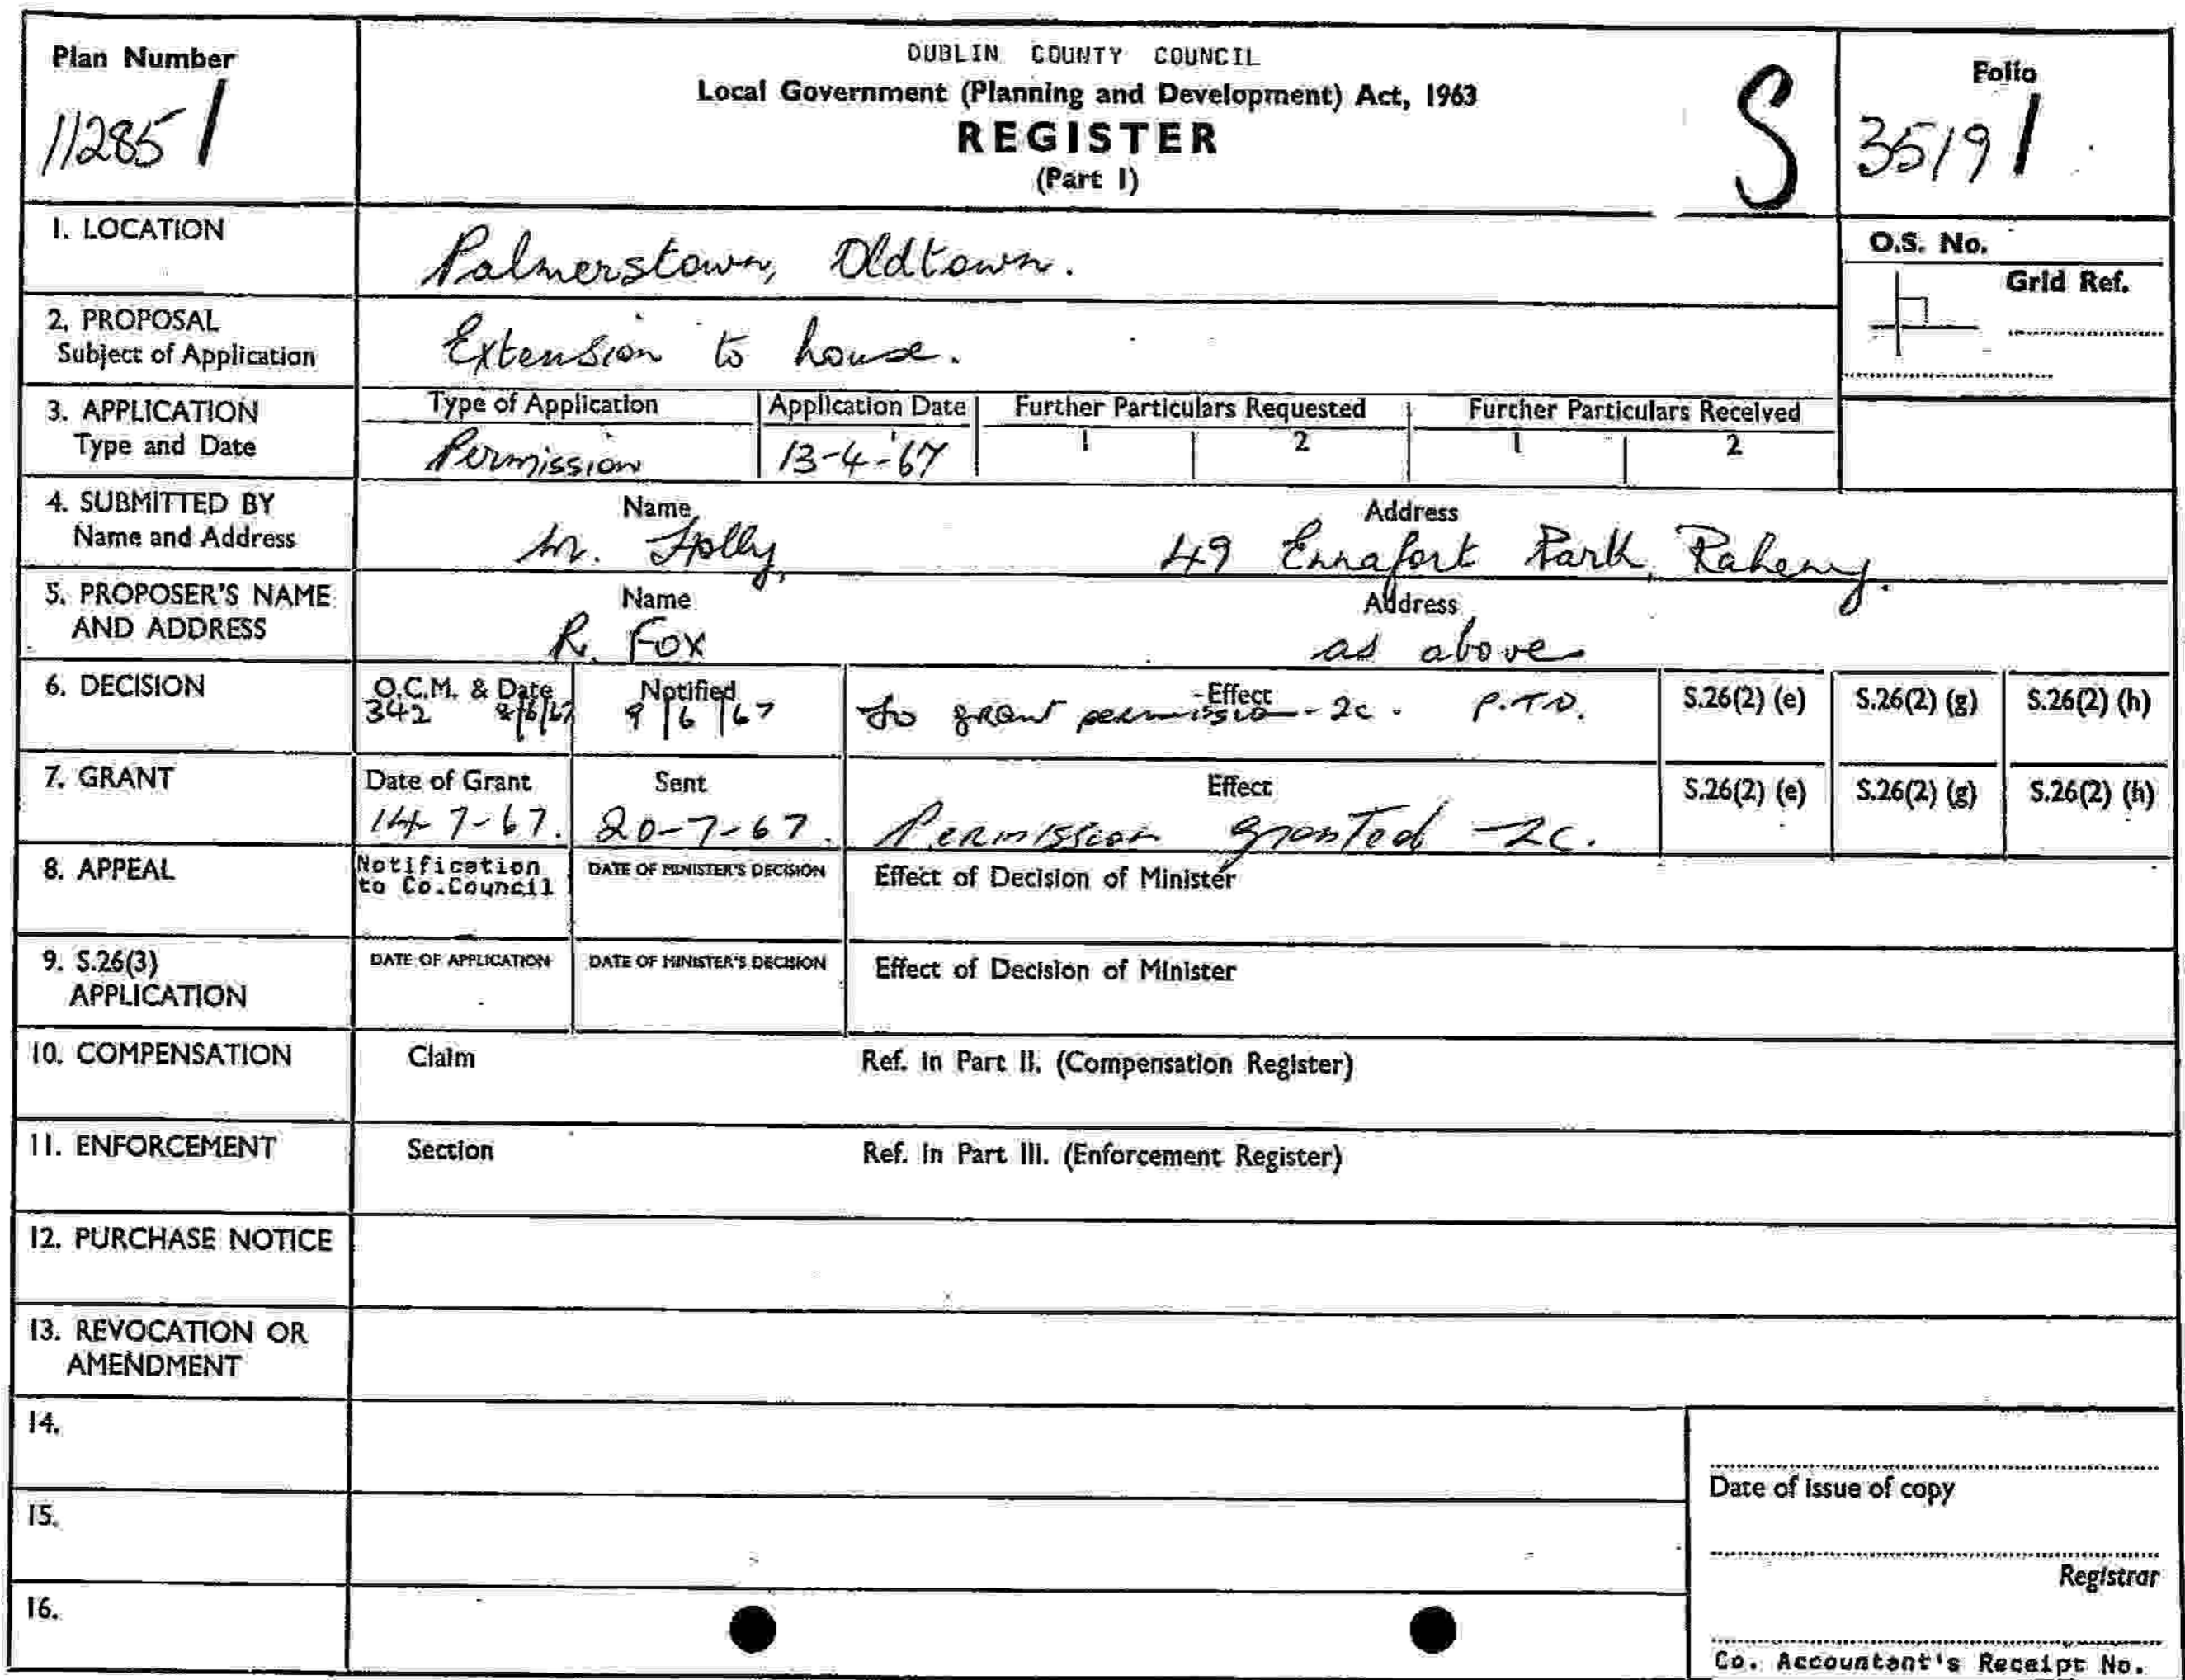 Plan Number
11285
DUBLIN COUNTY COUNCIL
Local Government (Planning and Development) Act, 1963
REGISTER
(Part I)
S
Folio
3519
1. LOCATION
Palmerstown, Oldtown.
O.S. No.
Grid Ref.
2. PROPOSAL
Subject of Application
Extension to house.
3. APPLICATION
Type and Date
Type of Application
Application Date
Further Particulars Requested
Further Particulars Received
1 2 1 2
Permission
13-4-'67
4. SUBMITTED BY
Name and Address
Name
Address
49 Ennafort Park, Raheny.
5. PROPOSER'S NAME
AND ADDRESS
Name
Address
R. Fox
as above
6. DECISION
O.C.M. & Date
342 8/6/67
Notified
9/6/67
Effect
To grant permission - 2c. P.T.O.
S.26(2) (e)
S.26(2) (g)
S.26(2) (h)
7. GRANT
Date of Grant
14-7-67.
Sent
20-7-67.
Effect
Permission granted - 2c.
S.26(2) (e)
S.26(2) (g)
S.26(2) (h)
8. APPEAL
Notification
to Co.Council
DATE OF MINISTER'S DECISION
Effect of Decision of Minister
9. S.26(3)
APPLICATION
DATE OF APPLICATION
DATE OF MINISTER'S DECISION
Effect of Decision of Minister
10. COMPENSATION
Claim
Ref. in Part II. (Compensation Register)
11. ENFORCEMENT
Section
Ref. in Part III. (Enforcement Register)
12. PURCHASE NOTICE
13. REVOCATION OR
AMENDMENT
14.
15.
16.
Date of issue of copy
Registrar
Co. Accountant's Receipt No.